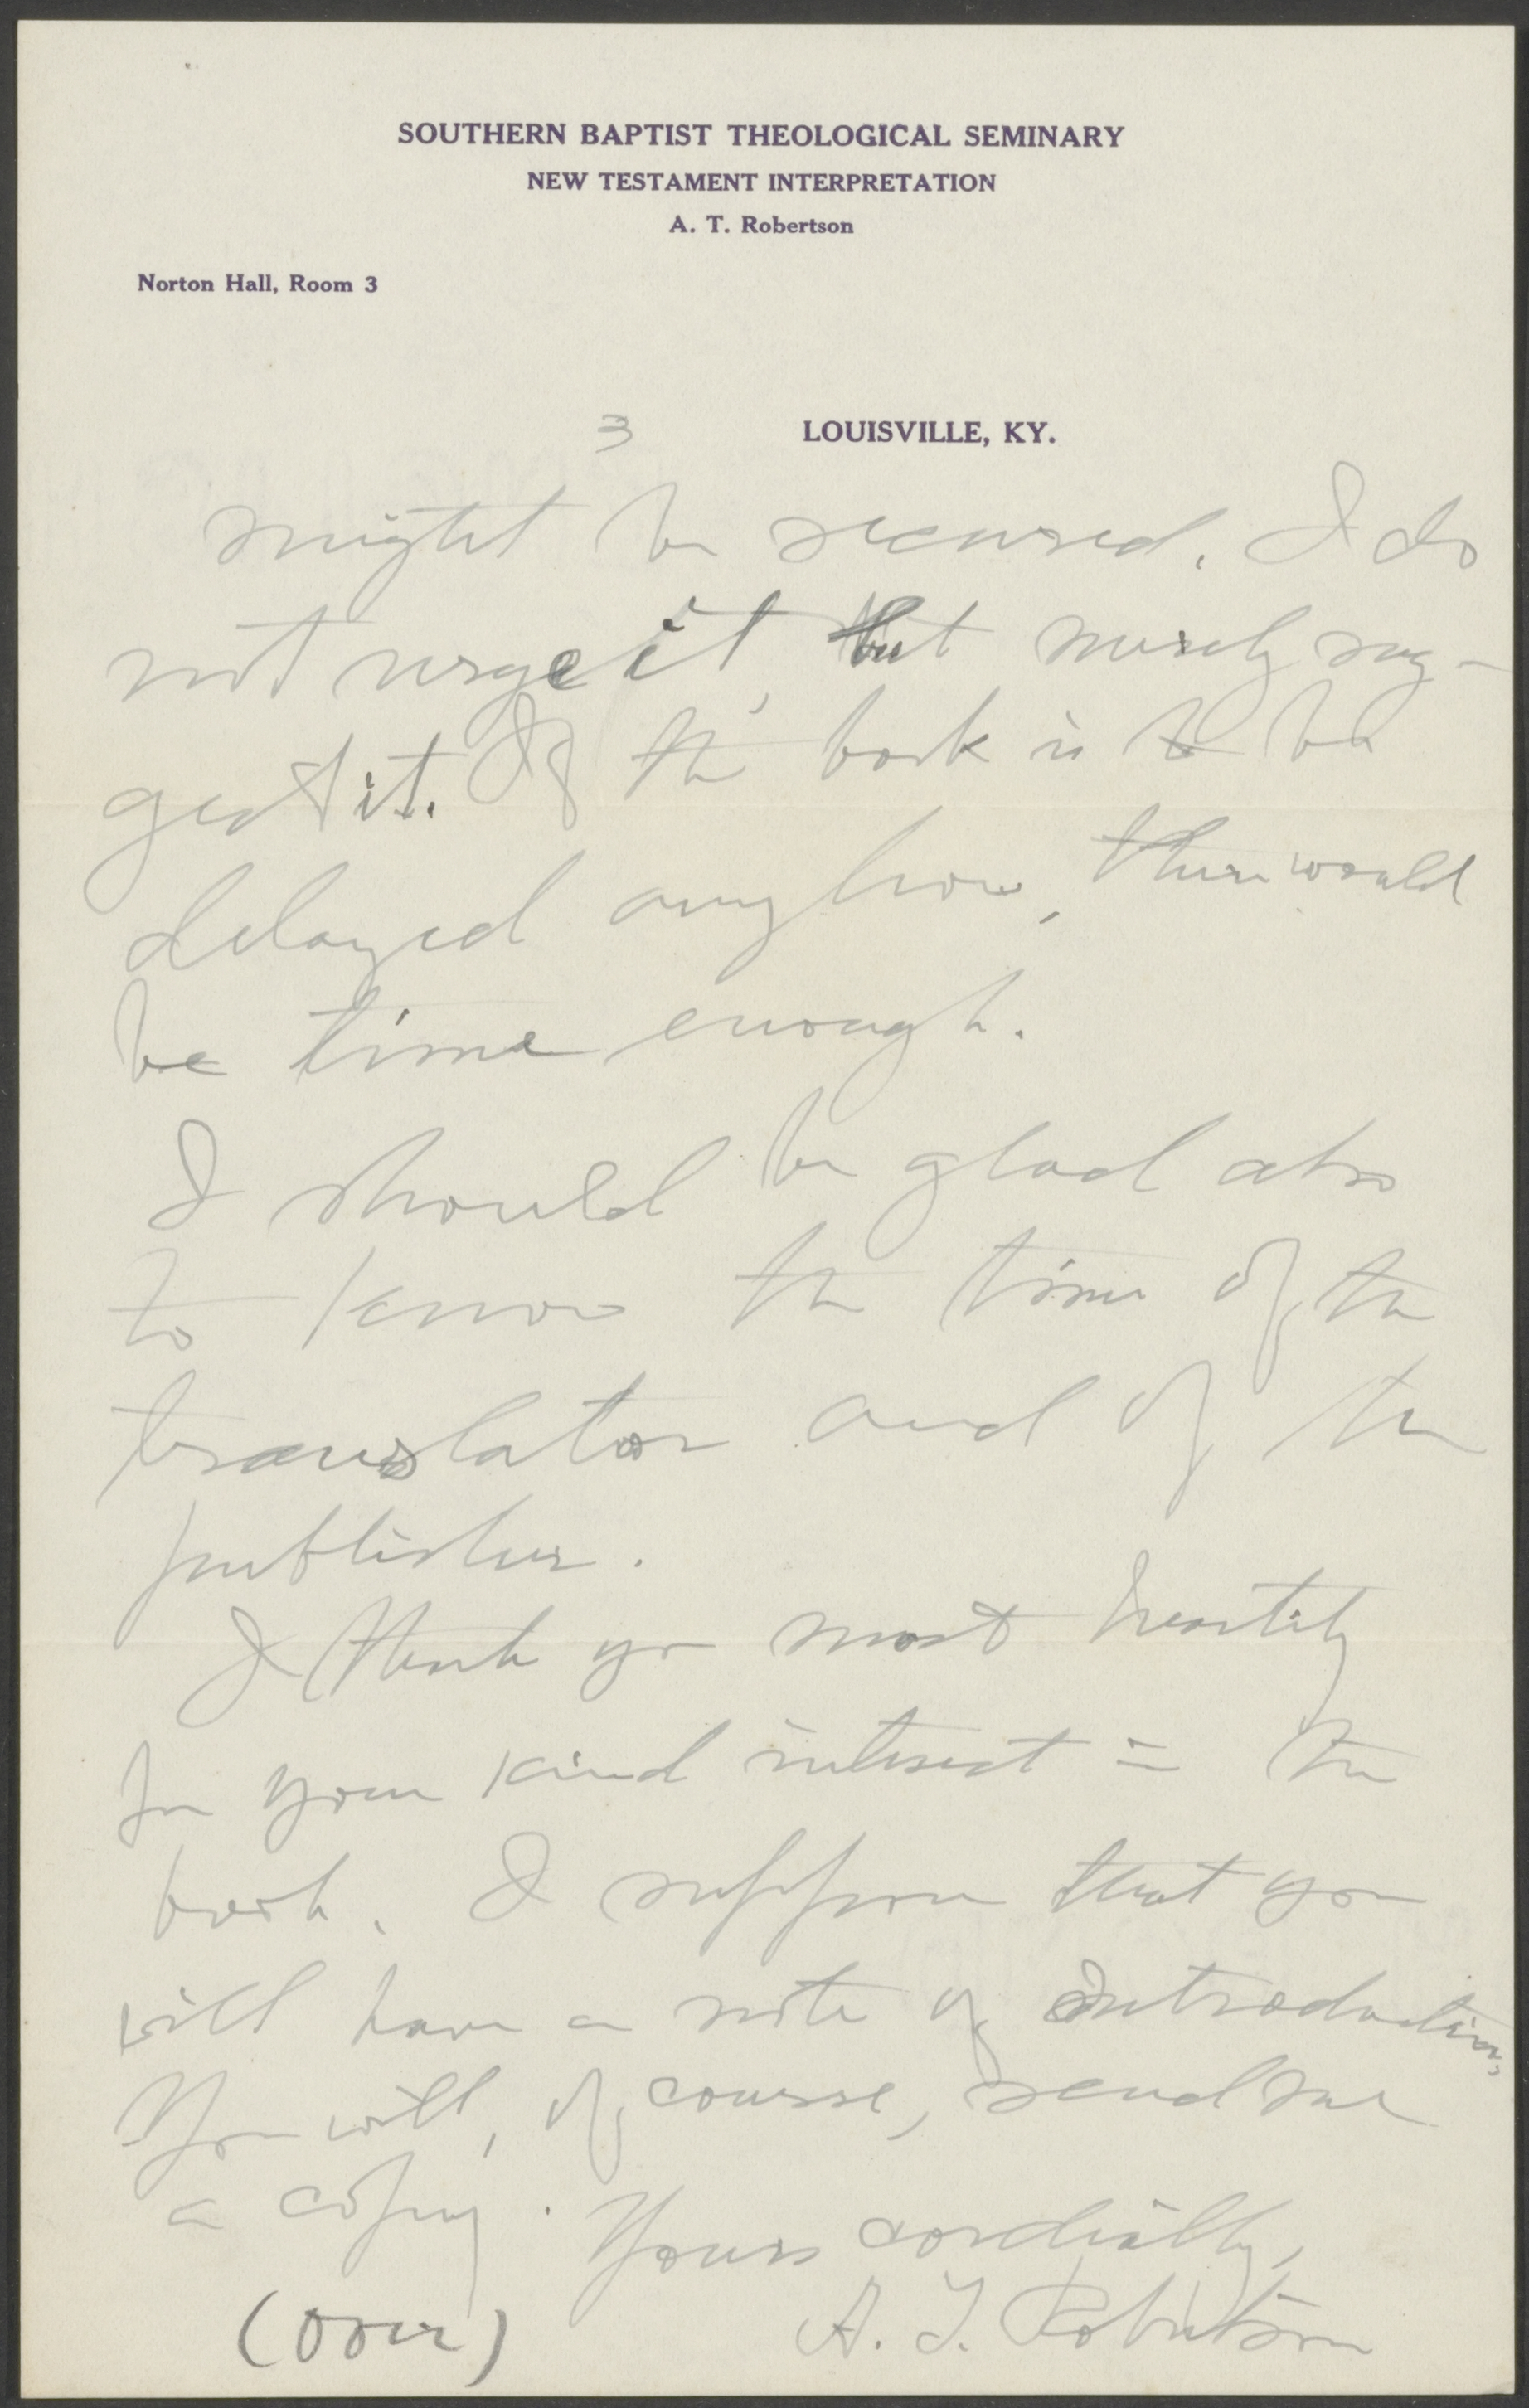 SOUTHERN BAPTIST THEOLOGICAL SEMINARY
NEW TESTAMENT INTERPRETATION
A. T. Robertson
Norton Hall, Room 3
3 LOUISVILLE, KY.
might be secured. I do
not urge it, but merely sug-
gest it. If the book is to be
delayed anyhow, there would
be time enough.
I should be glad also
to know the time of the
translator and of the
publisher.
I thank you most heartily
for your kind interest in the
book. I suppose that you
will have a note of Introduction.
You will, of course, send me
a copy. Yours cordially,
(over) A. T. Robertson